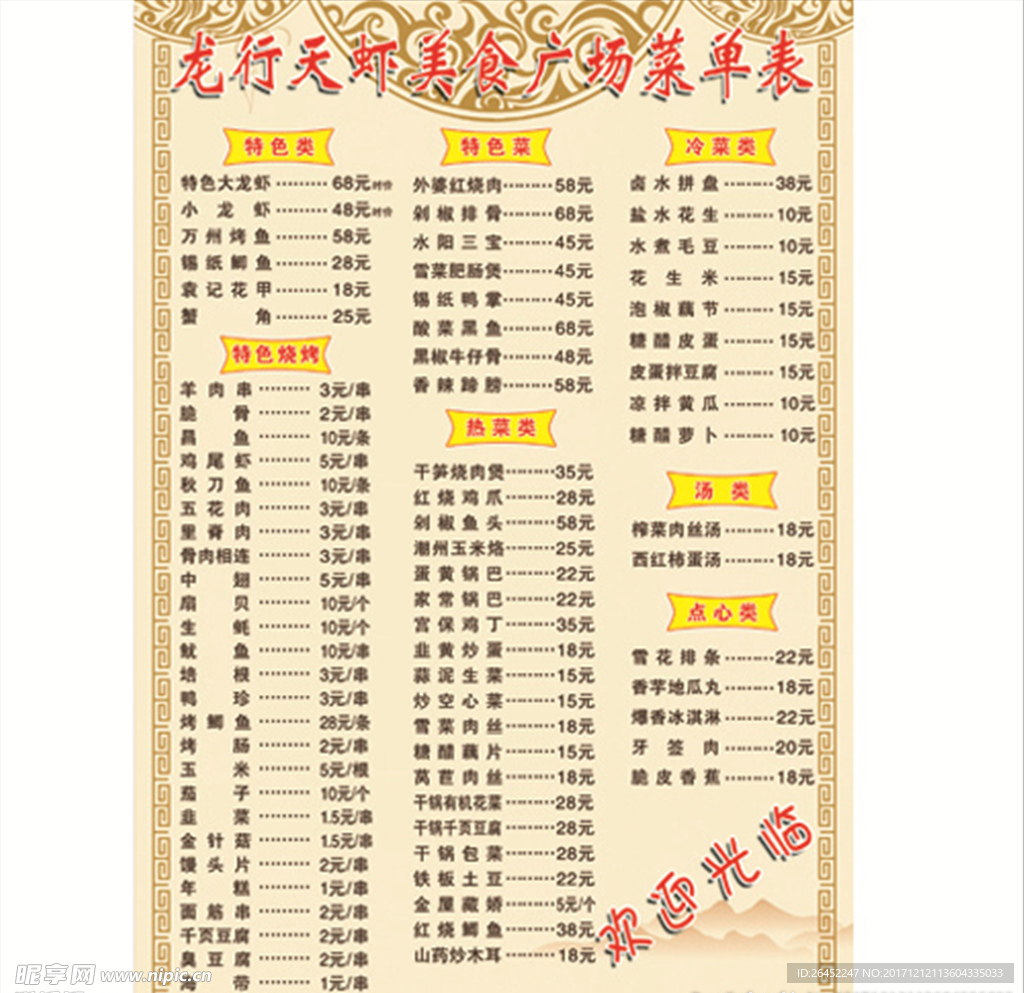 龙行天虾美食广场菜单表
特色类
特色大龙虾 ········· 68元时价
小龙虾 ········· 48元时价
万州烤鱼 ········· 58元
锡纸鲫鱼 ········· 28元
袁记花甲 ········· 18元
蟹角 25元
特色烧烤
羊肉串 ········· 3元/串
脆骨 ········· 2元/串
昌鱼 ········· 10元/条
鸡尾虾 ········· 5元/串
秋刀鱼 ········· 10元/条
五花肉 ········· 3元/串
里脊肉 ········· 3元/串
骨肉相连 ········· 3元/串
中翅 ········· 5元/串
扇贝 ········· 10元/个
生蚝 ········· 10元/个
鱿鱼 ········· 10元/串
培根 ········· 3元/串
鸭珍 ········· 3元/串
烤鲫鱼 ········· 28元/条
烤肠 ········· 2元/串
玉米 ········· 5元/根
茄子 ········· 10元/个
韭菜 ········· 1.5元/串
金针菇 ········· 1.5元/串
馒头片 ········· 2元/串
年糕 ········· 1元/串
面筋串 ········· 2元/串
千页豆腐 ········· 2元/串
臭豆腐 ········· 2元/串
海带 ········· 1元/串
特色菜
外婆红烧肉 ········· 58元
剁椒排骨 ········· 68元
水阳三宝 ········· 45元
雪菜肥肠煲 ········· 45元
锡纸鸭掌 ········· 45元
酸菜黑鱼 ········· 68元
黑椒牛仔骨 ········· 48元
香辣蹄膀 ········· 58元
热菜类
干笋烧肉煲 ········· 35元
红烧鸡爪 ········· 28元
剁椒鱼头 ········· 58元
潮州玉米烙 ········· 25元
蛋黄锅巴 ········· 22元
家常锅巴 ········· 22元
宫保鸡丁 ········· 35元
韭黄炒蛋 ········· 18元
蒜泥生菜 ········· 15元
炒空心菜 ········· 15元
雪菜肉丝 ········· 18元
糖醋藕片 ········· 15元
莴苣肉丝 ········· 18元
干锅有机花菜 ········· 28元
干锅千页豆腐 ········· 28元
干锅包菜 ········· 28元
铁板土豆 ········· 22元
金屋藏娇 ········· 5元/个
红烧鲫鱼 ········· 38元
山药炒木耳 ········· 18元
冷菜类
卤水拼盘 ········· 38元
盐水花生 ········· 10元
水煮毛豆 ········· 10元
花生米 ········· 15元
泡椒藕节 ········· 15元
糖醋皮蛋 ········· 15元
皮蛋拌豆腐 ········· 15元
凉拌黄瓜 ········· 10元
糖醋萝卜 ········· 10元
汤类
榨菜肉丝汤 ········· 18元
西红柿蛋汤 ········· 18元
点心类
雪花排条 ········· 22元
香芋地瓜丸 ········· 18元
爆香冰淇淋 ········· 22元
牙签肉 ········· 20元
脆皮香蕉 ········· 18元
欢迎光临
昵享网 www.nipic.cn
ID:26452247 NO:20171212113604335033